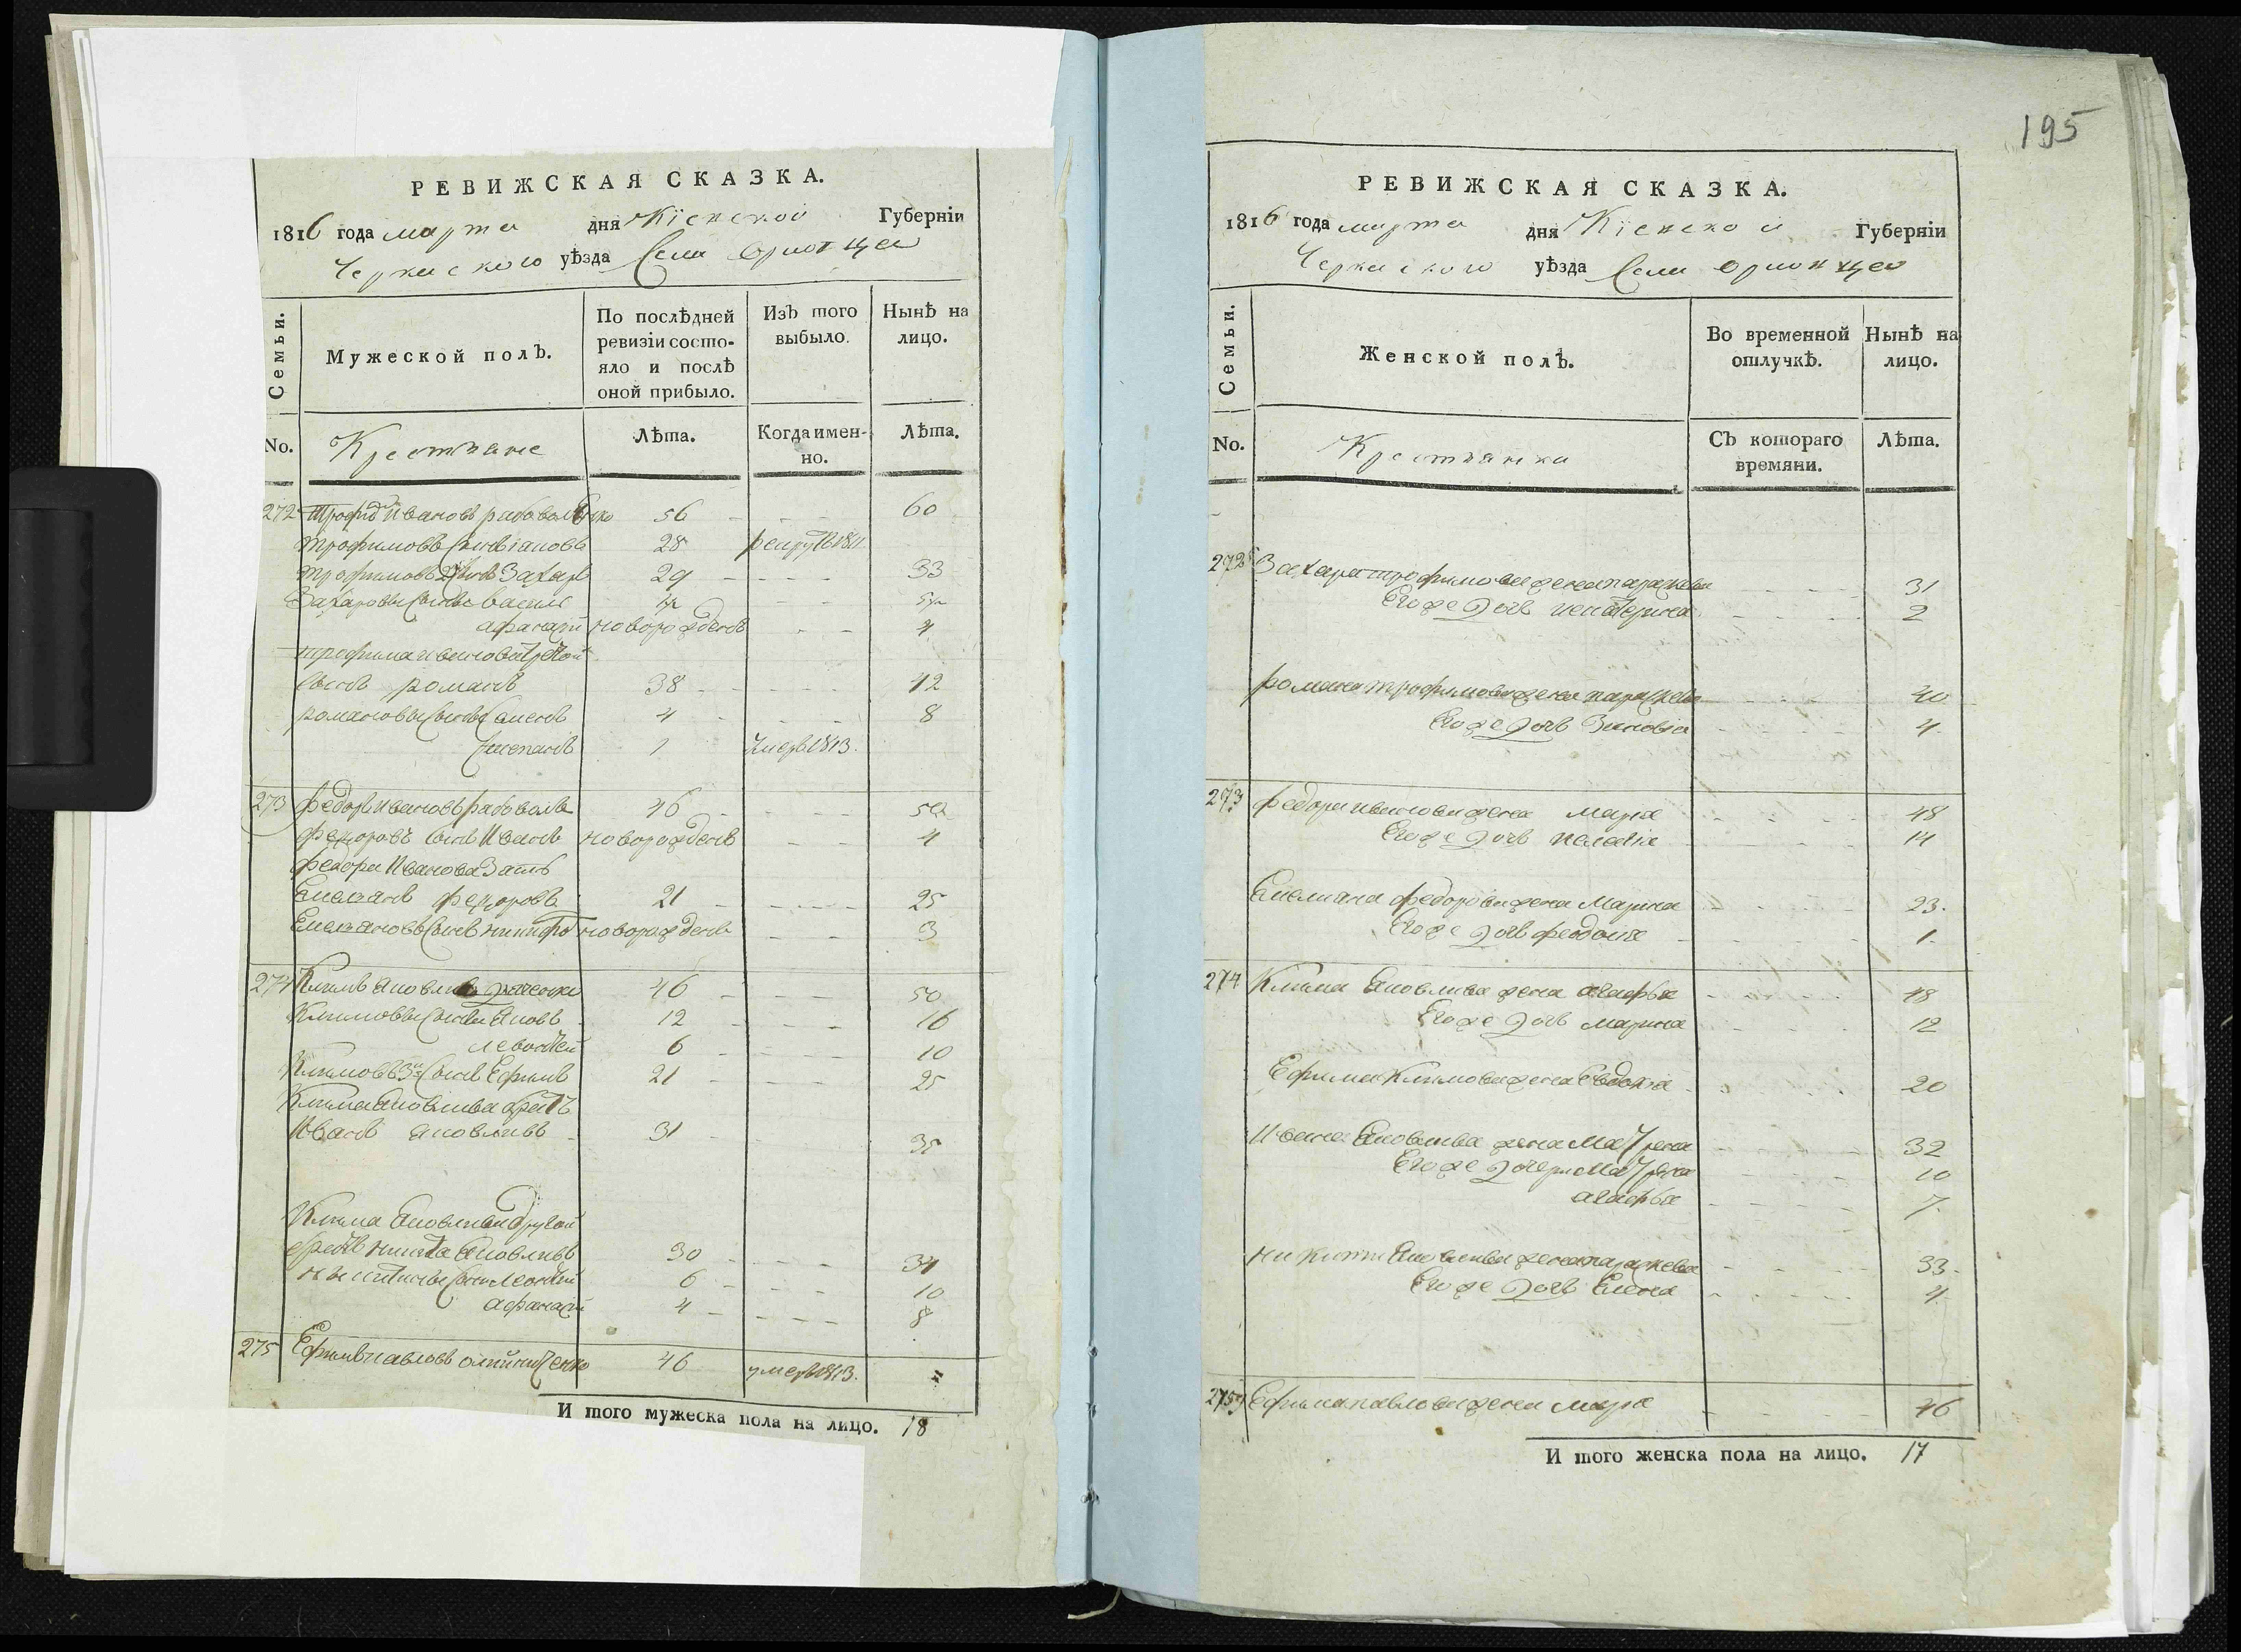 РЕВИЖСКАЯ СКАЗКА.
1816 года марта дня Кіевской Губерніи
Черкаского уѣзда Села
Семьи.
Мужеской полъ.
По послѣдней ревизіи состояло и послѣ оной прибыло.
Изъ того выбыло.
Нынѣ на лицо.
No.
Крестьяне
Лѣта.
Когда именно.
Лѣта.
272 Ивановъ 56 60
Трофимовъ Сынъ 28 1811
Трофимовъ Захаръ 29 33
Захаровы Сыновья Василь
афанасій новорожденъ 4
трофима иванова третой
Сынъ романъ 38 42
романовы Сыновья 4 8
Степанъ 1 умеръ 1813.
273 федоръ ивановъ 46 50
федоровъ Сынъ Иванъ новорожденъ 4
федора Иванова Зять
Емелянъ федоровъ 21 25
Емеляновъ Сынъ никифоръ новорожденъ 3
274 Климъ яковлевъ 46 50
Климовы Сыновья Яковъ 12 16
левонтей 6 10
Климовъ 3й Сынъ Ефимъ 21 25
Клима яковлива братъ
Иванъ яковливъ 31 35
Клима яковлива другой
братъ никита яковливъ 30 34
Сыны Леонтей 6 10
афанасій 4 8
275 Ефимъ павловъ 46 умеръ 1813.
И того мужеска пола на лицо. 18
195
РЕВИЖСКАЯ СКАЗКА.
1816 года марта дня Кіевской Губерніи
Черкаского уѣзда Села
Семьи.
Женской полъ.
Во временной отлучкѣ.
Нынѣ на лицо.
No.
Крестьянки
Съ котораго времяни.
Лѣта.
272 Захара трофимова жена параскева 31
Егоже дочь катерина 2
романа трофимова жена параскева 40
Егоже дочь Зиновія 4
273 федора иванова жена марія 48
Егоже дочь пелагія 14
Емеляна федорова жена Марина 23.
Егоже дочь феодосія 1
274 Клима яковлива жена агафья 48
Егоже дочь марина 12
Ефима Климова жена Евдокія 20
Ивана яковлива жена Матрена 32
Егоже дочери Матрена 10
агафья 7.
никиты яковлива жена параскева 33
Егоже дочь Елена 4
275 Ефима павлова жена марія 46
И того женска пола на лицо. 17